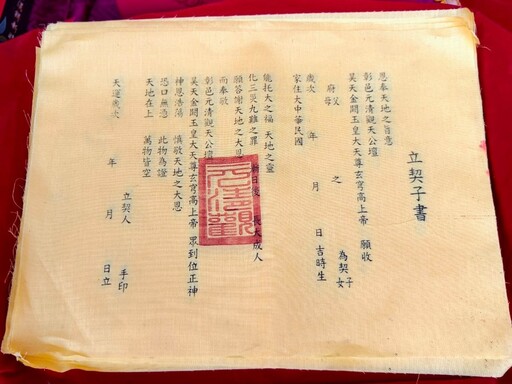 立契子書
恩奉天地之旨意
彰邑元清觀天公壇
昊天金闕玉皇大天尊玄穹高上帝 願收
府 父 之 為契子
母 女
歲次 年 月 日吉時生
家住大中華民國
能托大之福 天地之靈
化三災九難之罪 日後 長大成人
願答謝天地之大恩
而奉敬
彰邑元清觀天公壇
昊天金闕玉皇大天尊玄穹高上帝 眾到位正神
神恩浩蕩 慎敬天地之大恩
恐口無憑 此物為證
天地在上 萬物皆空
立契人 手印
天運歲次 年 月 日立
元清觀